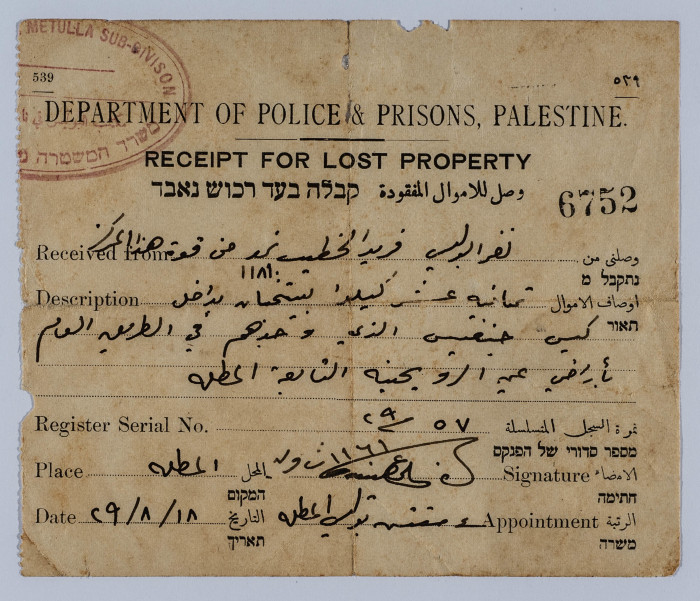 METULLA SUB-DIVISON
משרד המשטרה
539 ٥٣٩
DEPARTMENT OF POLICE & PRISONS, PALESTINE.
RECEIPT FOR LOST PROPERTY
وصل للاموال المفقودة קבלה בעד רכוש נאבד
6752
Received from نفر البوليس فريد الخطيب نمره من قوة هذا المركز وصلني من
١١٨١ נתקבל מ
Description ثمانية عشر كيلو بداخل اوصاف الاموال
תאור
كيس خنفيس الذي وجدهم في الطريق العام
بأراضي عين التابعة المطله
Register Serial No. ٢٩ ٥٧ نمرة السجل المتسلسلة
מספר סדורי של הפנקס
Place المطله المحل ١١٦١ Signature الامضاء
המקום חתימה
Date ٢٩/٨/١٨ التاريخ المطله Appointment الرتبة
תאריך משרה